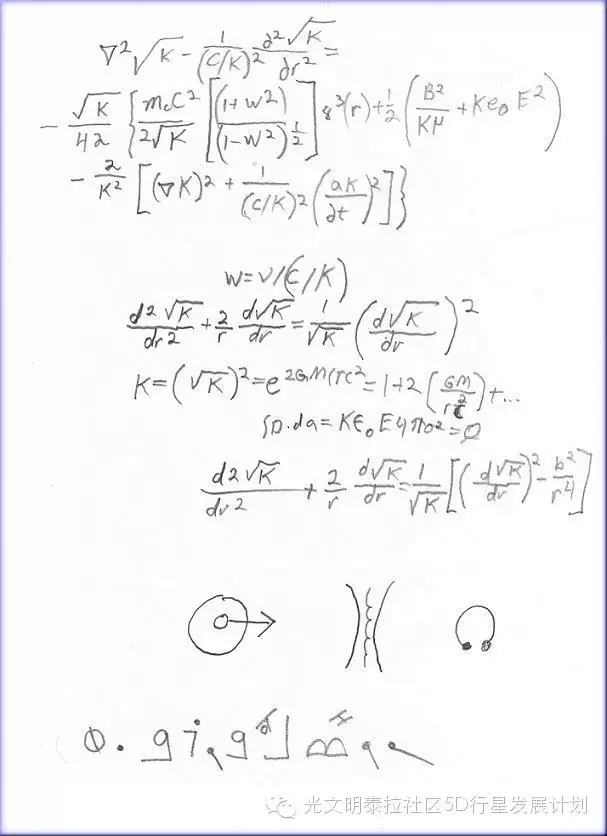 ∇²√K − 1/(C/K)² ∂²√K/∂r² =
− √K/4λ { m₀C²/2√K [ (1+w²)/(1−W²)^½ ] 8³(r) + ½ ( B²/Kμ + Ke₀E² )
− λ/K² [ (∇K)² + 1/(C/K)² (ak/∂t)² ] }
W = V/(C/K)
d2√K/dr² + 2/r d√K/dr = 1/√K (d√K/dr)²
K = (√K)² = e^2GM/rc² = 1+2 (GM/rc²) + ...
∫D.da = Kϵ₀E4πσ² = Q
d2√K/dr² + 2/r d√K/dr = 1/√K [ (d√K/dr)² − b²/r⁴ ]
光文明泰拉社区5D行星发展计划